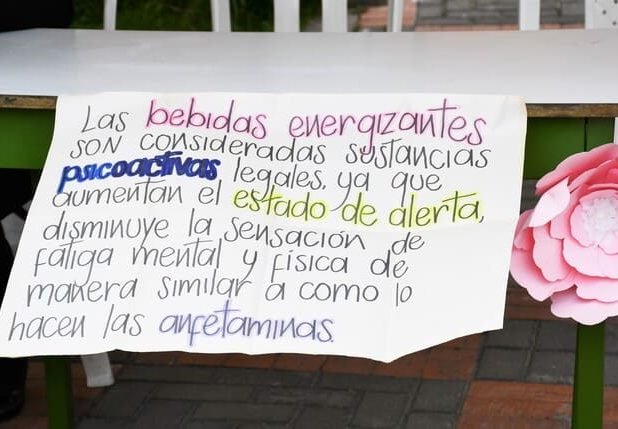 Las bebidas energizantes
son consideradas sustancias
psicoactivas legales, ya que
aumentan el estado de alerta,
disminuye la sensación de
fatiga mental y física de
manera similar a como lo
hacen las anfetaminas.